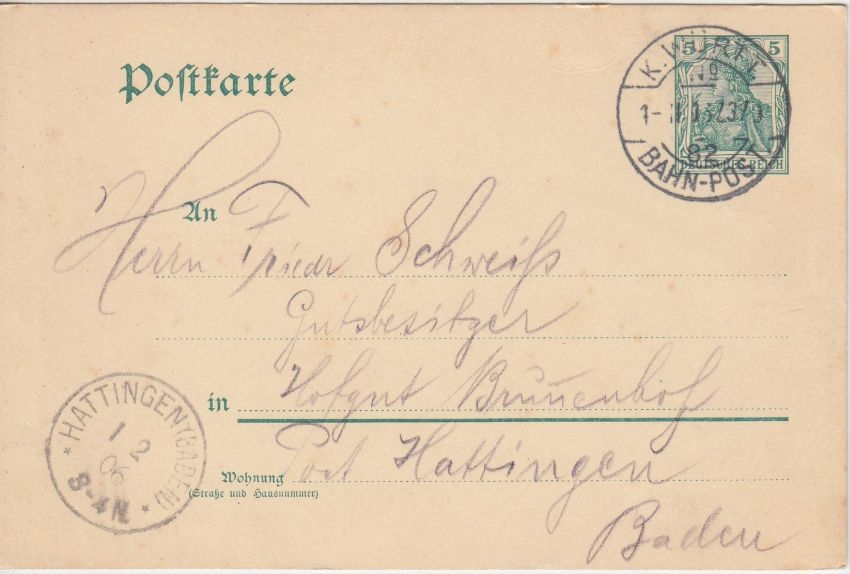 Postkarte
5 5
DEUTSCHES REICH
K. WÜRTT.
No
82
BAHN-POST
An
Herrn Friedr Schweiß
Gutsbesitzer
in Hofgut Brunenhof
Post Hattingen
Wohnung
(Straße und Hausnummer)
Baden
* HATTINGEN (BADEN) *
1 2
06
3-4 N.